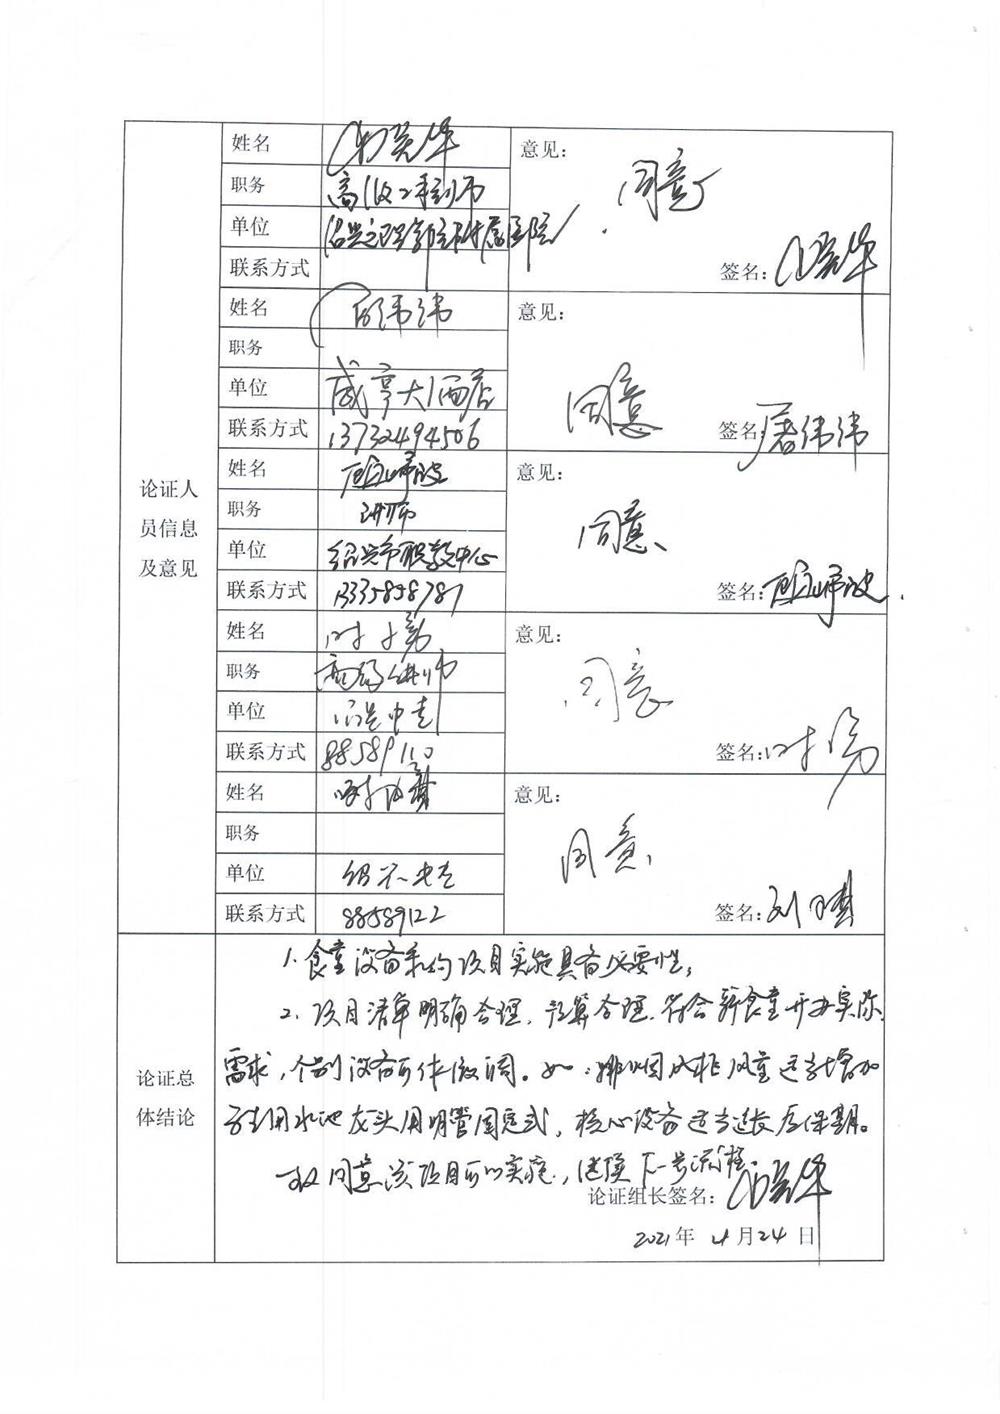 姓名
意见：
同意
职务
高级工程师
单位
绍兴文理学院附属医院
联系方式
签名：
姓名
意见：
职务
单位
咸亨大酒店
同意
联系方式
13732494506
签名：屠纬纬
姓名
意见：
论证人
员信息
及意见
职务
讲师
同意、
单位
绍兴市职教中心
联系方式
13335858781
签名：
姓名
意见：
职务
高级讲师
同意
单位
联系方式
88589110
签名：叶勇
姓名
意见：
职务
同意、
单位
联系方式
88589122
签名：
论证总
体结论
1. 食堂设备采购项目实施具备必要性；
2、项目清单明确合理，预算合理，符合新食堂开办实际
需求，个别设备可作微调。如：排烟风机风量适当增加
龙头用明管固定式，核心设备适当延长质保期。
故同意该项目可以实施，继续下一步流程。
论证组长签名：
2021年 4月24日